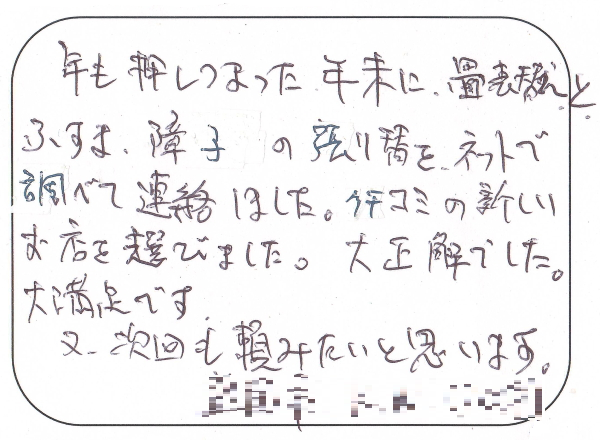 年も押しつまった年末に、畳表替えと
ふすま、障子の張り替を、ネットで
調べて連絡しました。クチコミの新しい
お店を選びました。大正解でした。
大満足です。
又、次回も頼みたいと思います。